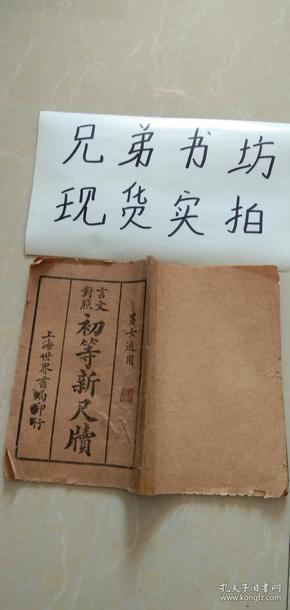 兄弟书坊
现货实拍
男女适用
言文
對照
初等新尺牘
上海世界書局印行
孔夫子旧书网